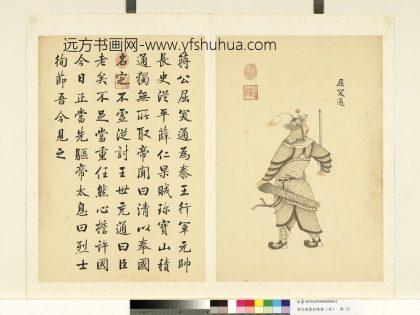 远方书画网-www.yfshuhua.com
屈突通
蔣公屈突通為秦王行軍元帥
長史從平薛仁杲賊珍寶山積
通獨無所取帝聞曰清以奉國
名定不虛從討王世充通曰臣
老矣不足當重任然心許國
今日正當先驅帝太息曰烈士
徇節吾今見之